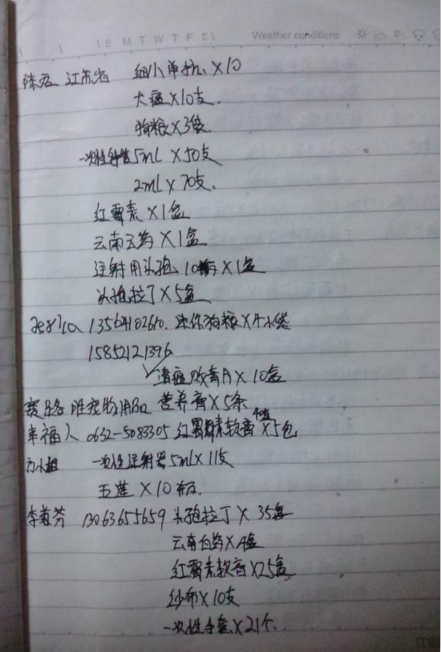 (S M T W T F S) Weather conditions
陈 江苏省 细小单抗 X10
犬瘟X10支
狗粮X3袋
一次性针管5mL X50支
2ml X 70支.
红霉素X1盒
云南云药X1盒
注射用头孢 10 X1盒
头孢拉丁X5盒
Jessica 狗粮X4小袋
15852121396
清瘟败毒片X 10盒
宠物用品 营养膏X5条
幸福人 0632-5083305 红霉素软膏X5包
方小姐 一次性注射器5mlX11支
X10板
李 13063655659 头孢拉丁X 35盒
云南白药X4盒
红霉素软膏X25盒
纱布X10支
一次性手套X21个.